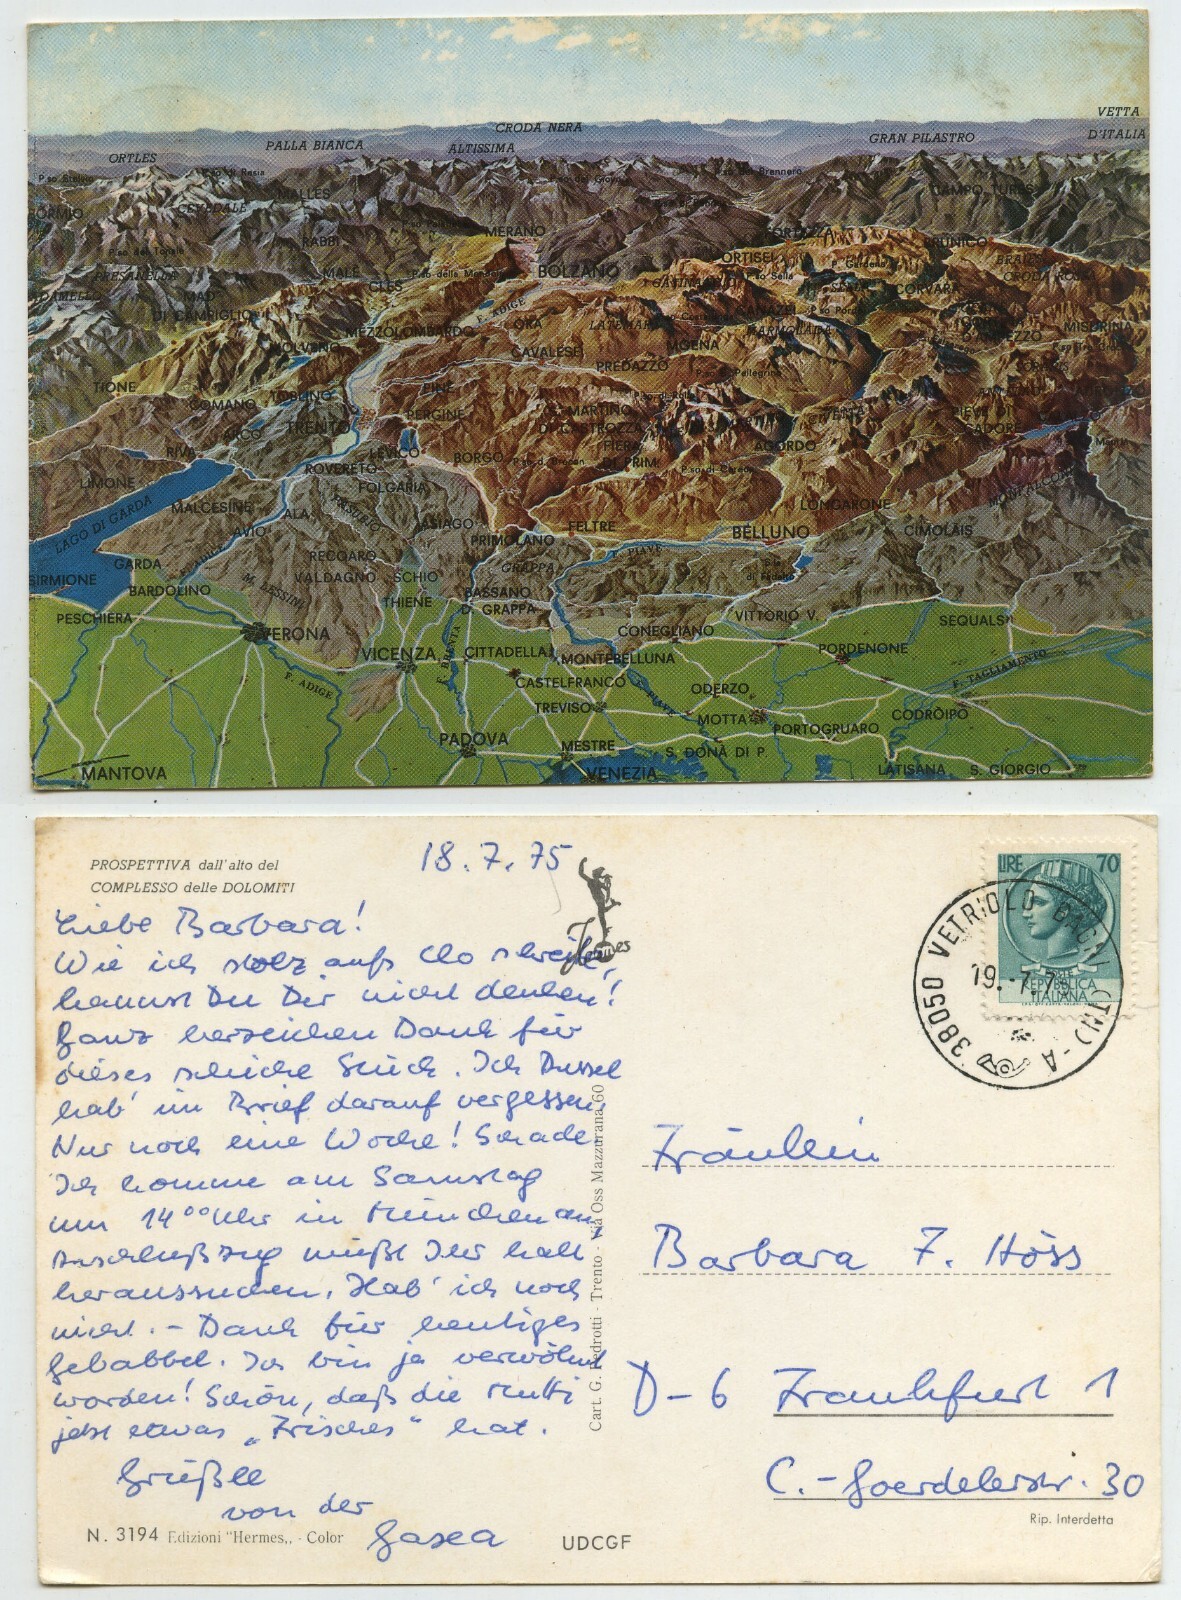 VETTA
D'ITALIA
CRODA NERA
GRAN PILASTRO
PALLA BIANCA
ALTISSIMA
ORTLES
P.so Stelvio
P.so di Resia
P.so del Brennero
MALLES
CAMPO TURES
BORMIO
CEVEDALE
MERANO
FORTEZZA
RABBI
BRUNICO
P.so del Tonale
ORTISEI
BRAIES
PRESANELLA
MALE
P.so della Mendola
BOLZANO
P.so Sella
P. Gardena
CRODA ROSSA
CLES
CORVARA
ADAMELLO
MAD.
DI CAMPIGLIO
F. ADIGE
CANAZEI
P.so Pordoi
MEZZOLOMBARDO
ORA
LATEMAR
MARMOLADA
MISURINA
D'AMPEZZO
MOLVENO
CAVALESE
MOENA
PREDAZZO
P.so di S. Pellegrino
TIONE
COMANO
TOBLINO
PERGINE
S. MARTINO
DI CASTROZZA
PIEVE DI
CADORE
TRENTO
ARCO
FIERA
DI PRIM.
AGORDO
RIVA
LEVICO
BORGO
P.so d. Brocon
P.so di Cereda
ROVERETO
LIMONE
FOLGARIA
MALCESINE
LONGARONE
MONFALCONI
LAGO DI GARDA
ALA
PASUBIO
ASIAGO
FELTRE
BELLUNO
CIMOLAIS
AVIO
PRIMOLANO
RECOARO
GRAPPA
F. PIAVE
GARDA
VALDAGNO
SCHIO
SIRMIONE
BARDOLINO
M. LESSINI
THIENE
BASSANO
D. GRAPPA
VITTORIO V.
PESCHIERA
VERONA
CONEGLIANO
SEQUALS
VICENZA
CITTADELLA
MONTEBELLUNA
PORDENONE
F. ADIGE
F. BRENTA
CASTELFRANCO
F. PIAVE
ODERZO
F. TAGLIAMENTO
TREVISO
MOTTA
CODRÒIPO
PORTOGRUARO
PADOVA
MESTRE
S. DONÀ DI P.
MANTOVA
VENEZIA
LATISANA
S. GIORGIO
PROSPETTIVA dall'alto del
COMPLESSO delle DOLOMITI
18.7.75
LIRE 70
REPUBBLICA
ITALIANA
38050 VETRIOLO BAGNI (TN) - A
19.-7.75
Hermes
Liebe Barbara!
Wie ich stolz aufs Clo schreite,
kannst Du Dir nicht denken!
Ganz herzlichen Dank für
dieses schicke Stück. Ich Dussel
hab' im Brief darauf vergessen.
Nur noch eine Woche! Schade
Ich komme am Samstag
um 14⁰⁰ Uhr in München an,
Anschlußzug müßt Ihr halt
heraussuchen. Hab' ich noch
nicht. - Dank für heutiges
Gebabbel. Ich bin ja verwöhnt
worden! Schön, daß die Mutti
jetzt etwas „Frisches" hat.
Grüßle
von der
Gasea
Fräulein
Barbara F. Höss
D-6 Frankfurt 1
C.-Goerdelerstr. 30
Cart. G. Pedrotti - Trento - Via Oss Mazzurana, 60
Rip. Interdetta
N. 3194 Edizioni "Hermes,, - Color
UDCGF